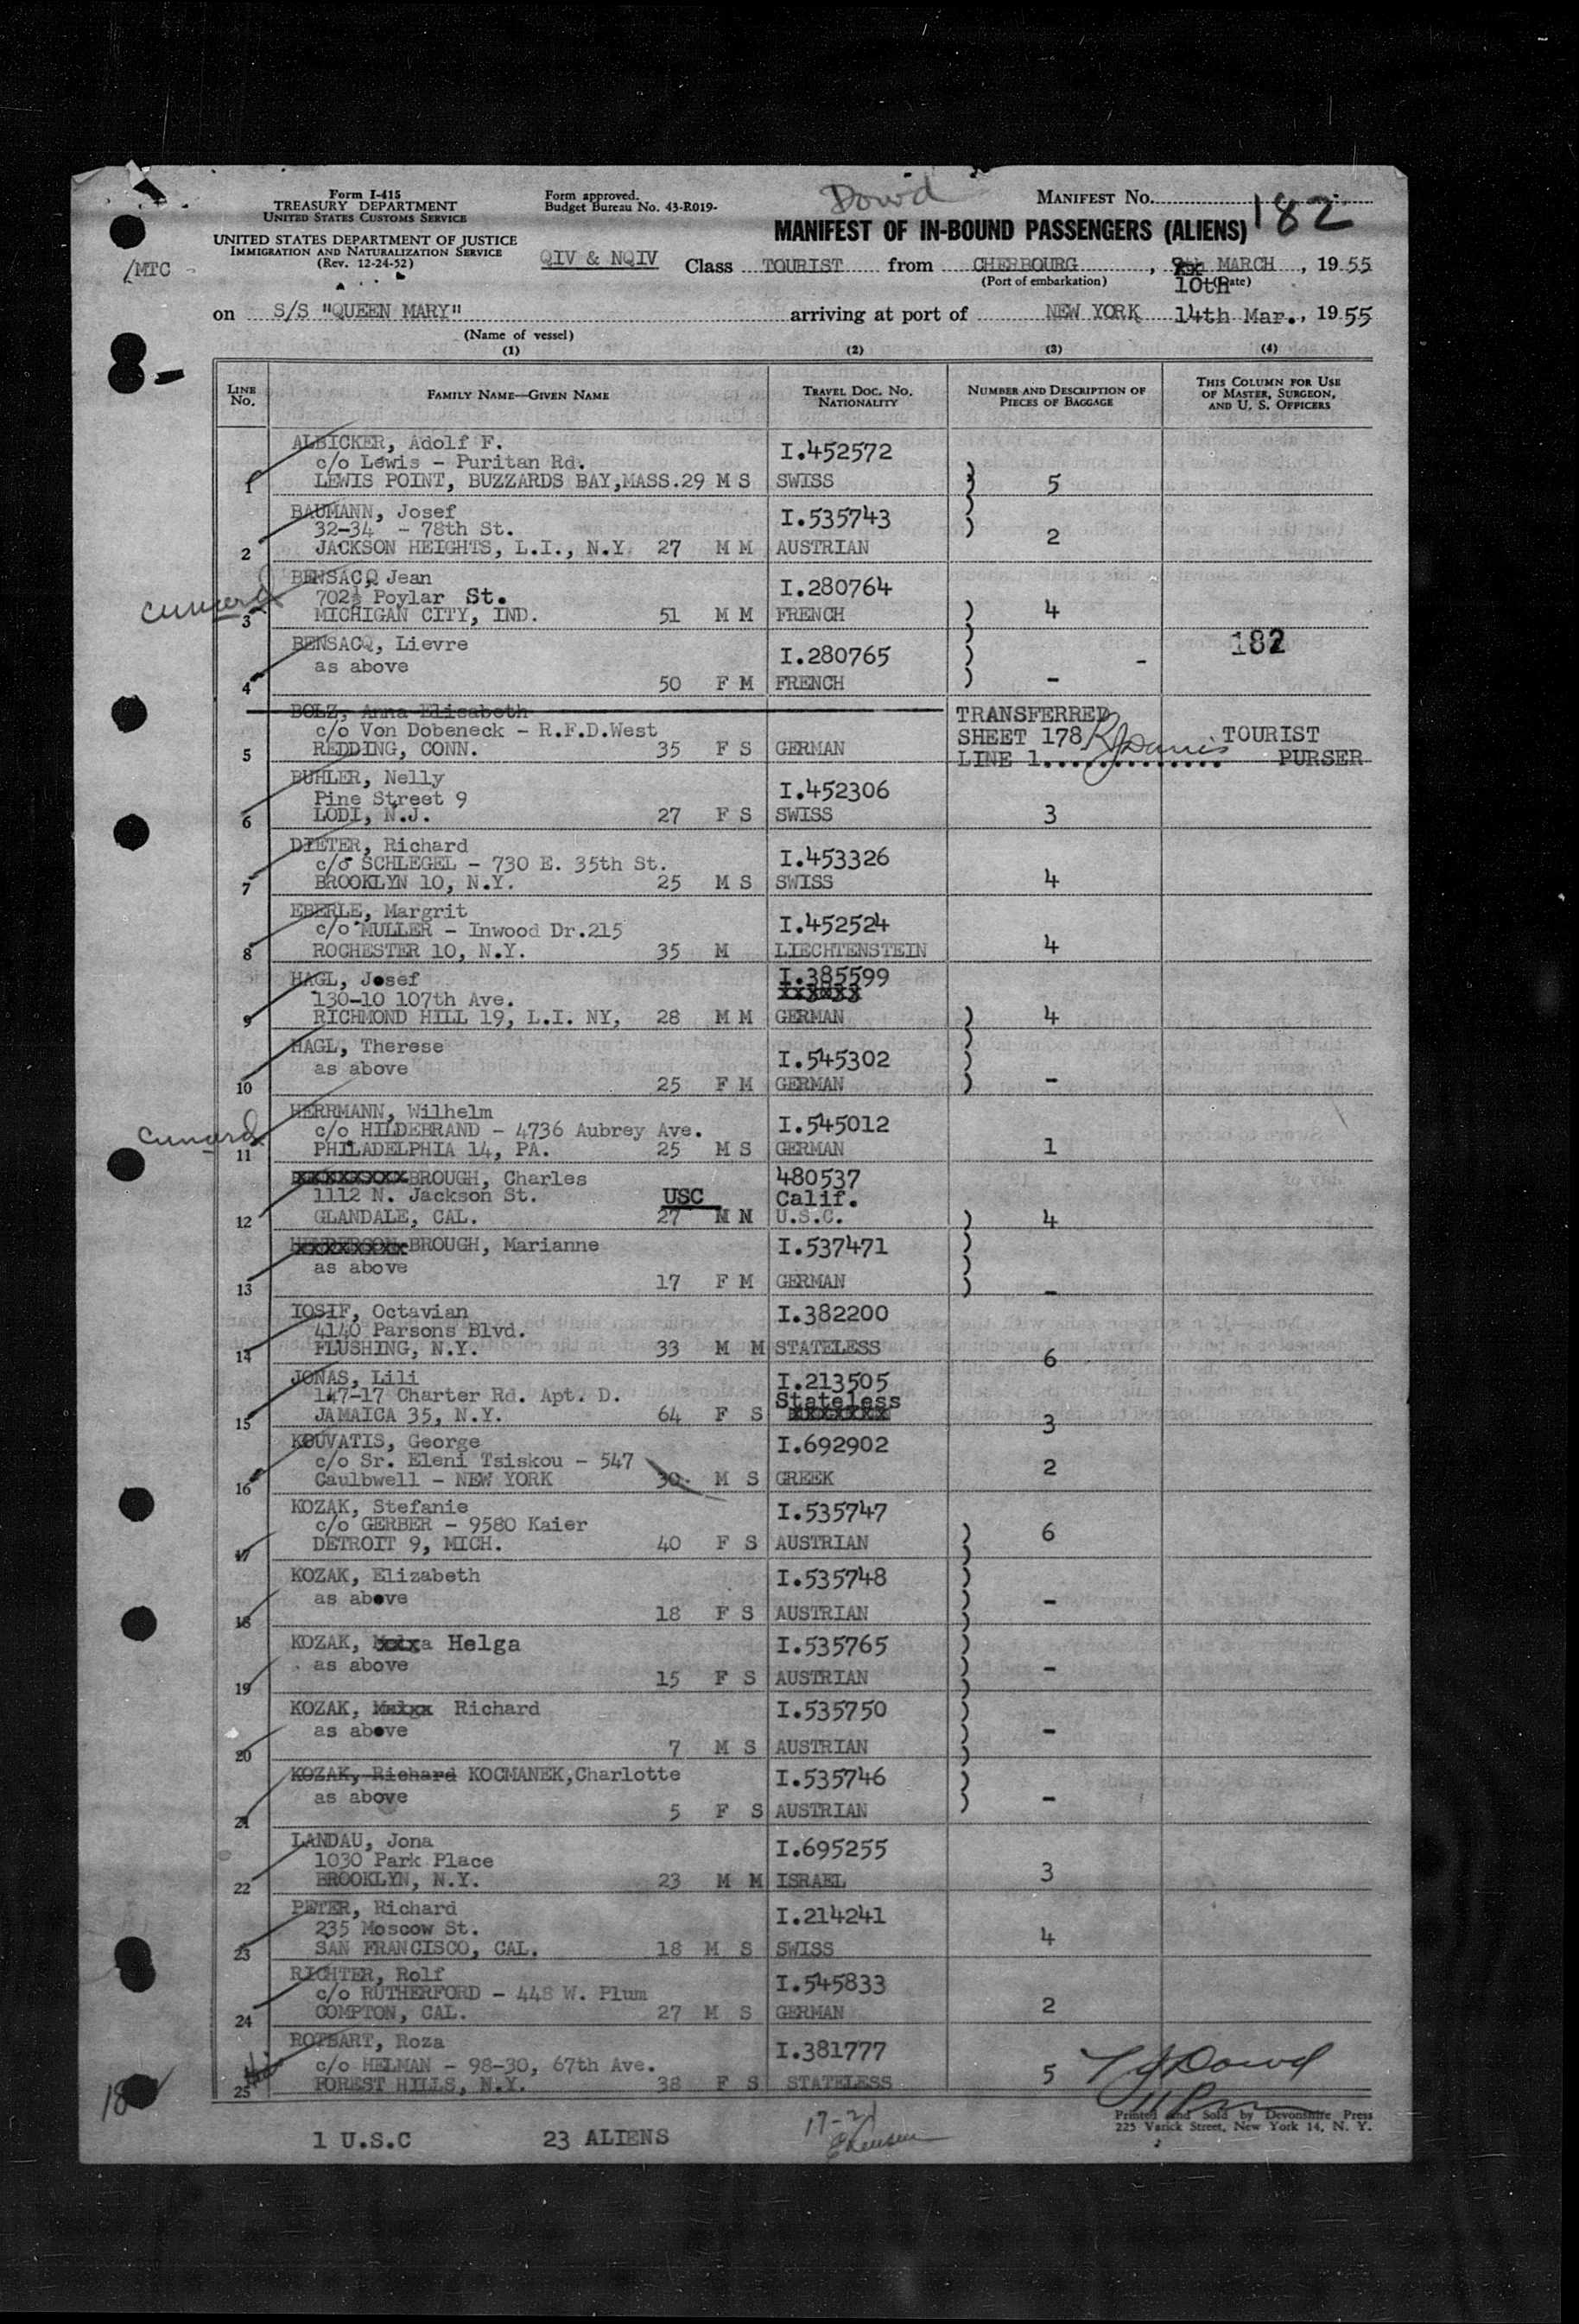 Form I-415
TREASURY DEPARTMENT
UNITED STATES CUSTOMS SERVICE
UNITED STATES DEPARTMENT OF JUSTICE
IMMIGRATION AND NATURALIZATION SERVICE
(Rev. 12-24-52)
/MTC
Form approved.
Budget Bureau No. 43-R019-
QIV & NQIV
Dowd
MANIFEST No. 182
MANIFEST OF IN-BOUND PASSENGERS (ALIENS)
Class TOURIST from CHERBOURG, 9th MARCH, 1955
(Port of embarkation) 10th (Date)
on S/S "QUEEN MARY" arriving at port of NEW YORK 14th Mar., 1955
(Name of vessel)
(1) (2) (3) (4)
8-
LINE No. FAMILY NAME—GIVEN NAME TRAVEL DOC. NO. NATIONALITY NUMBER AND DESCRIPTION OF PIECES OF BAGGAGE THIS COLUMN FOR USE OF MASTER, SURGEON, AND U. S. OFFICERS
ALBICKER, Adolf F. I.452572
c/o Lewis - Puritan Rd.
1 LEWIS POINT, BUZZARDS BAY,MASS.29 M S SWISS ) 5
BAUMANN, Josef I.535743
32-34 - 78th St.
2 JACKSON HEIGHTS, L.I., N.Y. 27 M M AUSTRIAN 2
BENSACQ Jean I.280764
cunard 702½ Poylar St.
3 MICHIGAN CITY, IND. 51 M M FRENCH ) 4
BENSACQ, Lievre I.280765 182
as above
4 50 F M FRENCH ) -
BOLZ, Anna Elisabeth TRANSFERRED
c/o Von Dobeneck - R.F.D.West SHEET 178 TOURIST
5 REDDING, CONN. 35 F S GERMAN LINE 1 PURSER
BUHLER, Nelly I.452306
Pine Street 9
6 LODI, N.J. 27 F S SWISS 3
DIETER, Richard I.453326
c/o SCHLEGEL - 730 E. 35th St.
7 BROOKLYN 10, N.Y. 25 M S SWISS 4
EBERLE, Margrit I.452524
c/o MULLER - Inwood Dr.215
8 ROCHESTER 10, N.Y. 35 M LIECHTENSTEIN 4
HAGL, Josef I.385599
130-10 107th Ave.
9 RICHMOND HILL 19, L.I. NY, 28 M M GERMAN ) 4
HAGL, Therese I.545302
as above
10 25 F M GERMAN ) -
HERRMANN, Wilhelm I.545012
cunard c/o HILDEBRAND - 4736 Aubrey Ave.
11 PHILADELPHIA 14, PA. 25 M S GERMAN 1
BROUGH, Charles 480537
1112 N. Jackson St. USC Calif.
12 GLANDALE, CAL. 27 M M U.S.C. ) 4
HENDERSON BROUGH, Marianne I.537471
as above
13 17 F M GERMAN ) -
IOSIF, Octavian I.382200
4140 Parsons Blvd.
14 FLUSHING, N.Y. 33 M M STATELESS 6
JONAS, Lili I.213505
147-17 Charter Rd. Apt. D. Stateless
15 JAMAICA 35, N.Y. 64 F S 3
KOUVATIS, George I.692902
c/o Sr. Eleni Tsiskou - 547
16 Caulbwell - NEW YORK 30 M S GREEK 2
KOZAK, Stefanie I.535747
c/o GERBER - 9580 Kaier
17 DETROIT 9, MICH. 40 F S AUSTRIAN ) 6
KOZAK, Elizabeth I.535748
as above
18 18 F S AUSTRIAN ) -
KOZAK, Helga I.535765
as above
19 15 F S AUSTRIAN ) -
KOZAK, Richard I.535750
as above
20 7 M S AUSTRIAN ) -
KOZAK, Richard KOCMANEK,Charlotte I.535746
as above
21 5 F S AUSTRIAN ) -
LANDAU, Jona I.695255
1030 Park Place
22 BROOKLYN, N.Y. 23 M M ISRAEL 3
PETER, Richard I.214241
235 Moscow St.
23 SAN FRANCISCO, CAL. 18 M S SWISS 4
RICHTER, Rolf I.545833
c/o RUTHERFORD - 448 W. Plum
24 COMPTON, CAL. 27 M S GERMAN 2
ROTBART, Roza I.381777
c/o HELMAN - 98-30, 67th Ave.
25 FOREST HILLS, N.Y. 38 F S STATELESS 5 Dowd
1 U.S.C 23 ALIENS 17-21
Printed and Sold by Devonshire Press
225 Varick Street, New York 14, N. Y.